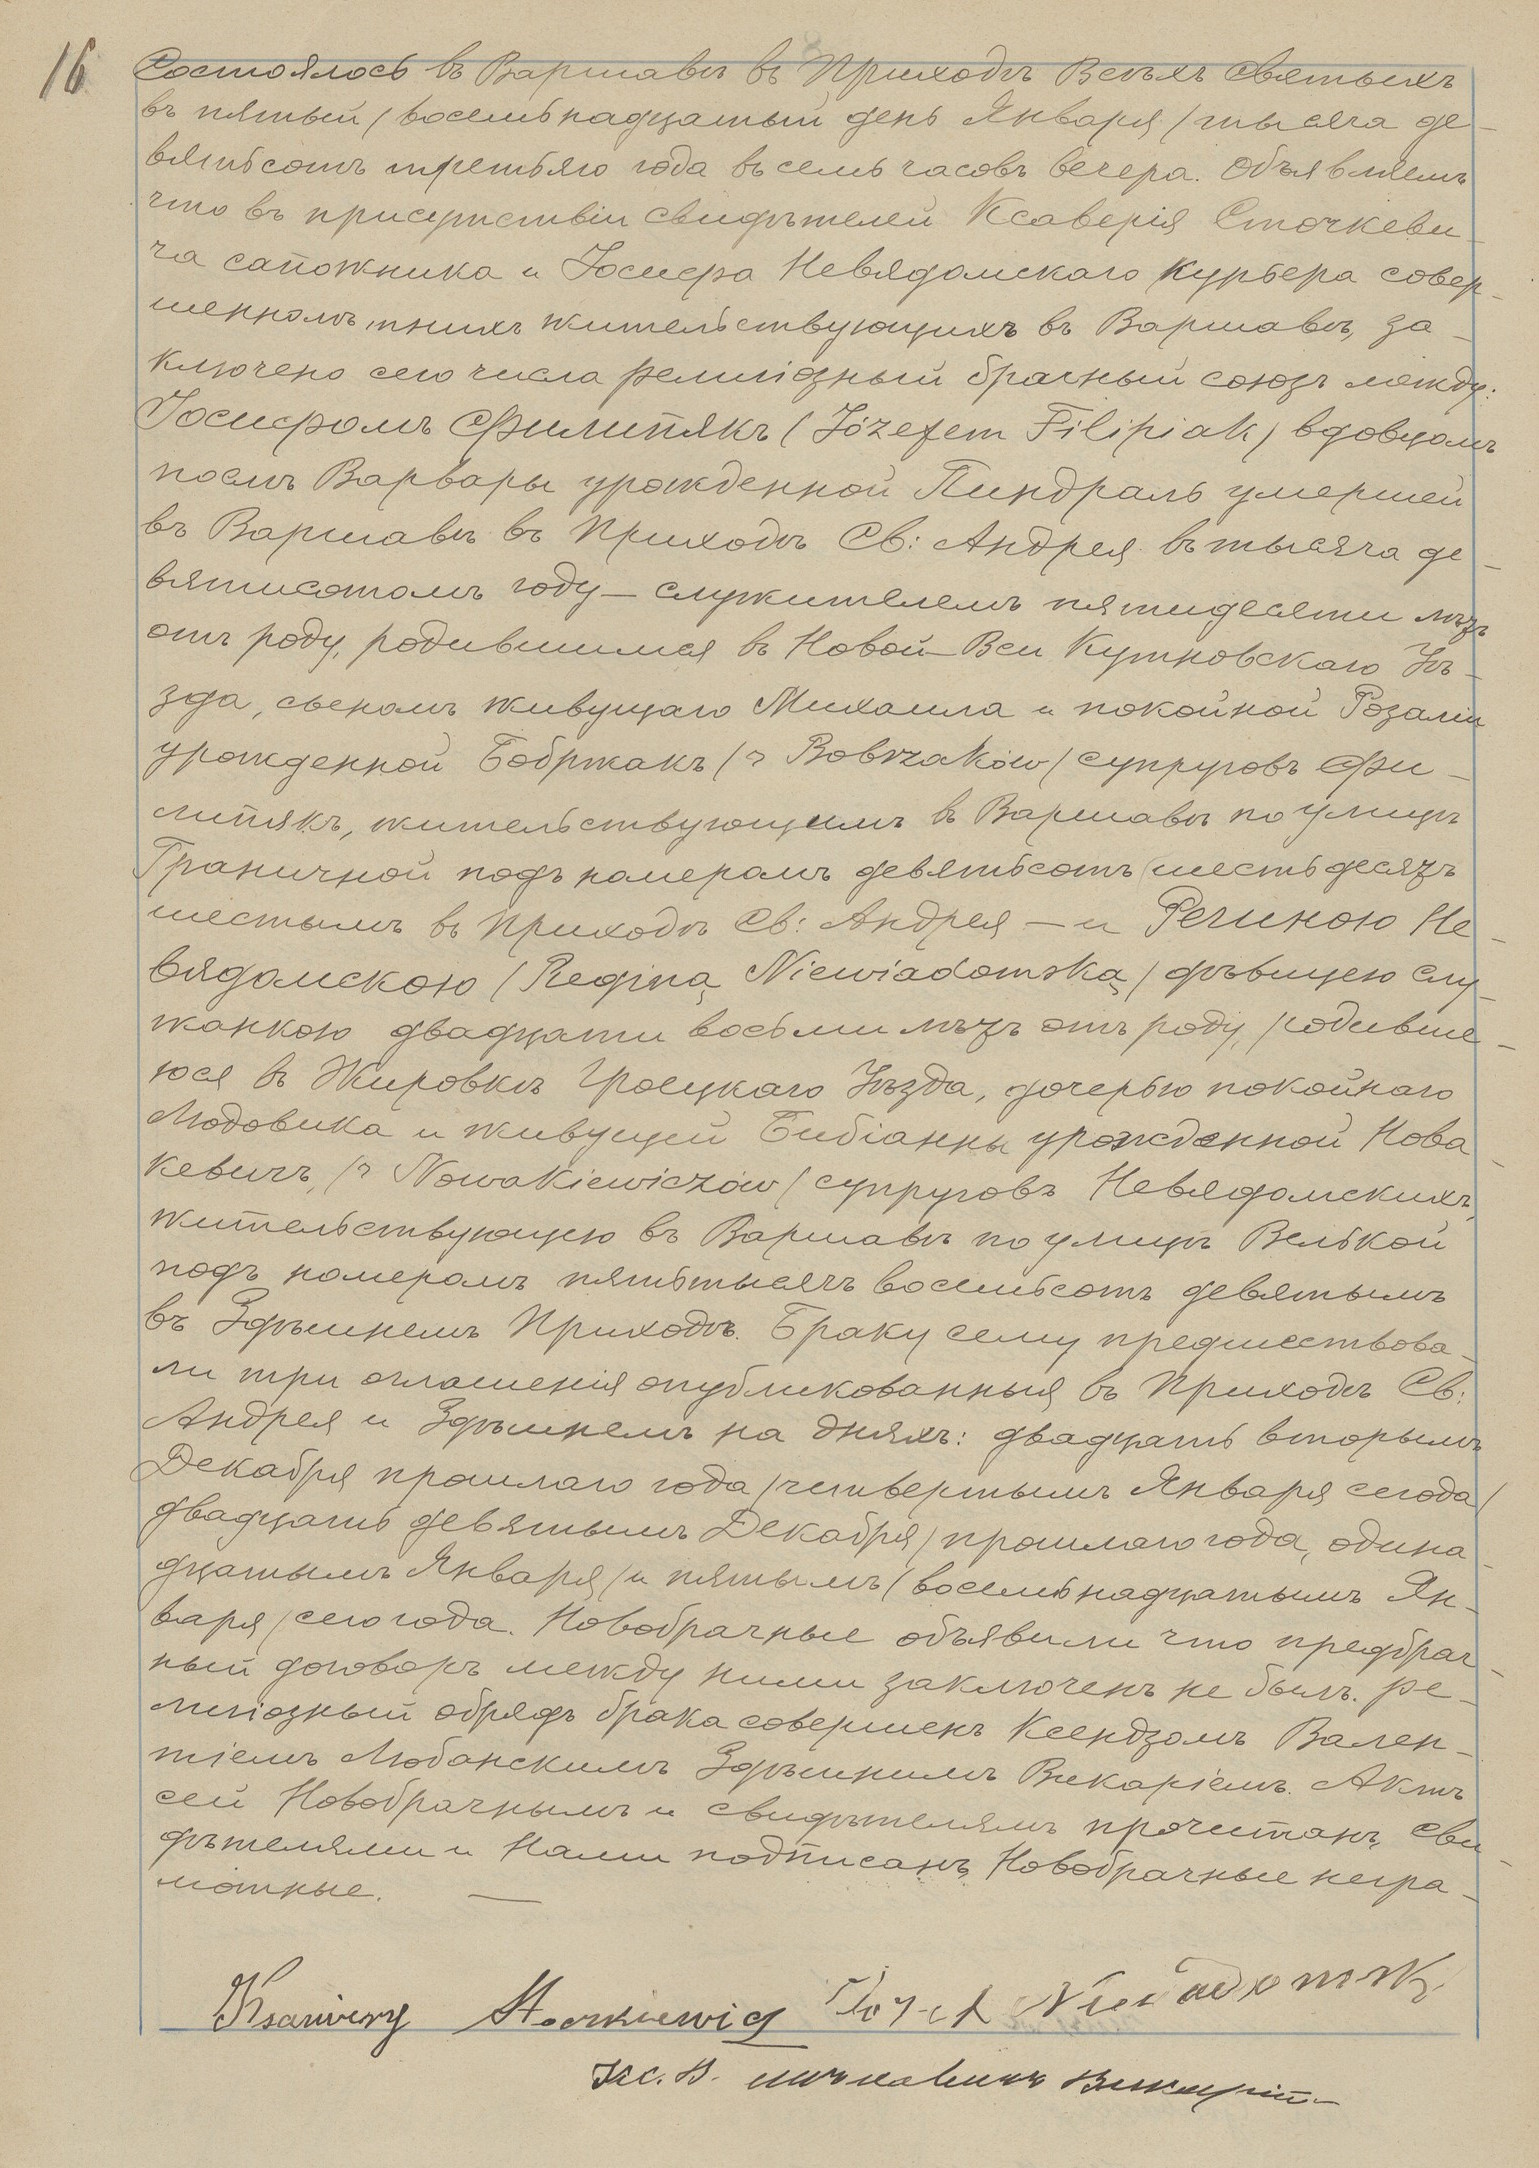 16
Состоялось въ Варшавѣ въ Приходѣ Всѣхъ Святыхъ
въ пятый /восемьнадцатый день Января/ тысяча де-
вятьсотъ третьяго года въ семь часовъ вечера. Объявляемъ
что въ присутствіи свидѣтелей Ксаверія Сточкеви-
ча сапожника и Іосифа Невядомскаго курьера совер-
шеннолѣтнихъ жительствующихъ въ Варшавѣ, за-
ключено сего числа религіозный брачный союзъ между:
Іосифомъ Филипякъ (Józefem Filipiak) вдовцомъ
послѣ Варвары урожденной Пиндраль умершей
въ Варшавѣ въ Приходѣ Св: Андрея въ тысяча де-
вятисотомъ году — служителемъ пятидесяти лѣтъ
отъ роду, родившимся въ Новой-Вси Кутновскаго Уѣ-
зда, сыномъ живущаго Михаила и покойной Розаліи
урожденной Бобржакъ /z Bobrzaków/ супруговъ Фи-
липякъ, жительствующимъ въ Варшавѣ по улицѣ
Граничной подъ номеромъ девятьсотъ шестьдесятъ
шестымъ въ Приходѣ Св: Андрея — и Региною Не-
вядомскою /Reginą Niewiadomską/ дѣвицею слу-
жанкою двадцати восьми лѣтъ отъ роду, родивше-
юся въ Жировкѣ Гроецкаго Уѣзда, дочерью покойнаго
Людовика и живущей Бибіанны урожденной Нова-
кевичъ, /z Nowakiewiczów/ супруговъ Невядомскихъ,
жительствующею въ Варшавѣ по улицѣ Велькой
подъ номеромъ пятьтысячъ восемьсотъ девятымъ
въ Здѣшнемъ Приходѣ. Браку сему предшествова-
ли три оглашенія опубликованныя въ Приходѣ Св:
Андрея и Здѣшнемъ на дняхъ: двадцать вторымъ
Декабря прошлаго года /четвертымъ Января сегода/
двадцать девятымъ Декабря /прошлаго года, одина-
дцатымъ Января/ и пятымъ /восемьнадцатымъ Ян-
варя/ сего года. Новобрачные объявили что предбрач-
ный договоръ между ними заключенъ не былъ. Ре-
лигіозный обрядъ брака совершенъ Ксендзомъ Вален-
тіемъ Любанскимъ Здѣшнимъ Викаріемъ. Актъ
сей Новобрачнымъ и свидѣтелямъ прочитанъ, Сви-
дѣтелями и Нами подписанъ, Новобрачные негра-
мотные. —
Ksawery Stoczkiewicz Józef Niewiadomski
Кс. В. Викарій